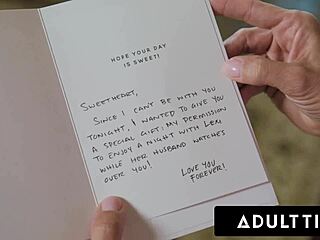 HOPE YOUR DAY
IS SWEET!
SWEETHEART,
SINCE I CAN'T BE WITH YOU
TONIGHT, I WANTED TO GIVE YOU
A SPECIAL GIFT: MY PERMISSION
TO ENJOY A NIGHT WITH LEXI
WHILE HER HUSBAND WATCHES
OVER YOU!
LOVE YOU
FOREVER!
ADULT TI